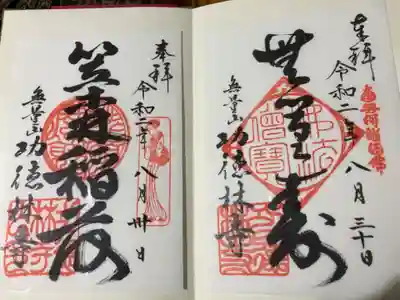 奉拝
令和二年 八月三十日
無量寿
無量山 功徳林寺
奉拝
令和二年 八月卅日
笠森稲荷
無量山 功徳林寺